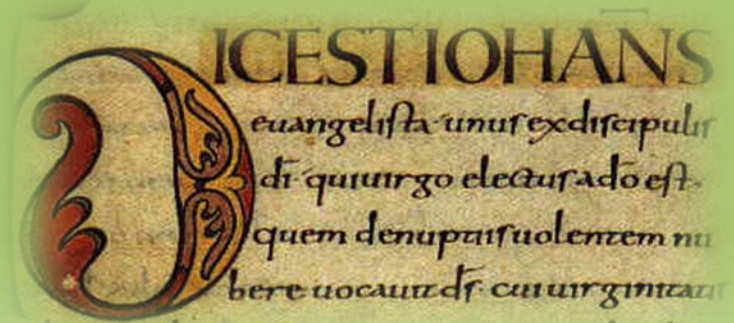 HIC EST IOHANNS
euangelista · unus ex discipulis
dī · qui uirgo electus a dō est ·
quem de nuptiis uolentem nu
bere uocauit ds̄ · cui uirginitatis